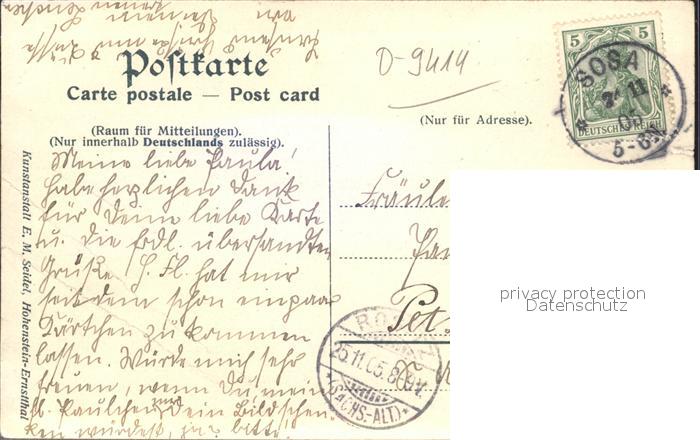 Postkarte
Carte postale — Post card
(Raum für Mitteilungen).
(Nur innerhalb Deutschlands zulässig).
(Nur für Adresse).
D-9414
5 5
DEUTSCHES REICH
SOSA
11
05
5-6N
Meine liebe Paula!
habe herzlichen Dank
für Deine liebe Karte
u. die frdl. übersandten
Grüße. S. Fl. hat mir
seit dem schon ein paar
Kärtchen zukommen
lassen. Würde mich sehr
freuen, wenn Du, mein
lb. Paulchen mir Dein Bildchen
ken würdest, ja bitte!
Fräule
Pet
25.11.05.8-9V.
(SACHS-ALT.)
Kunstanstalt E. M. Seidel, Hohenstein-Ernstthal
privacy protection
Datenschutz